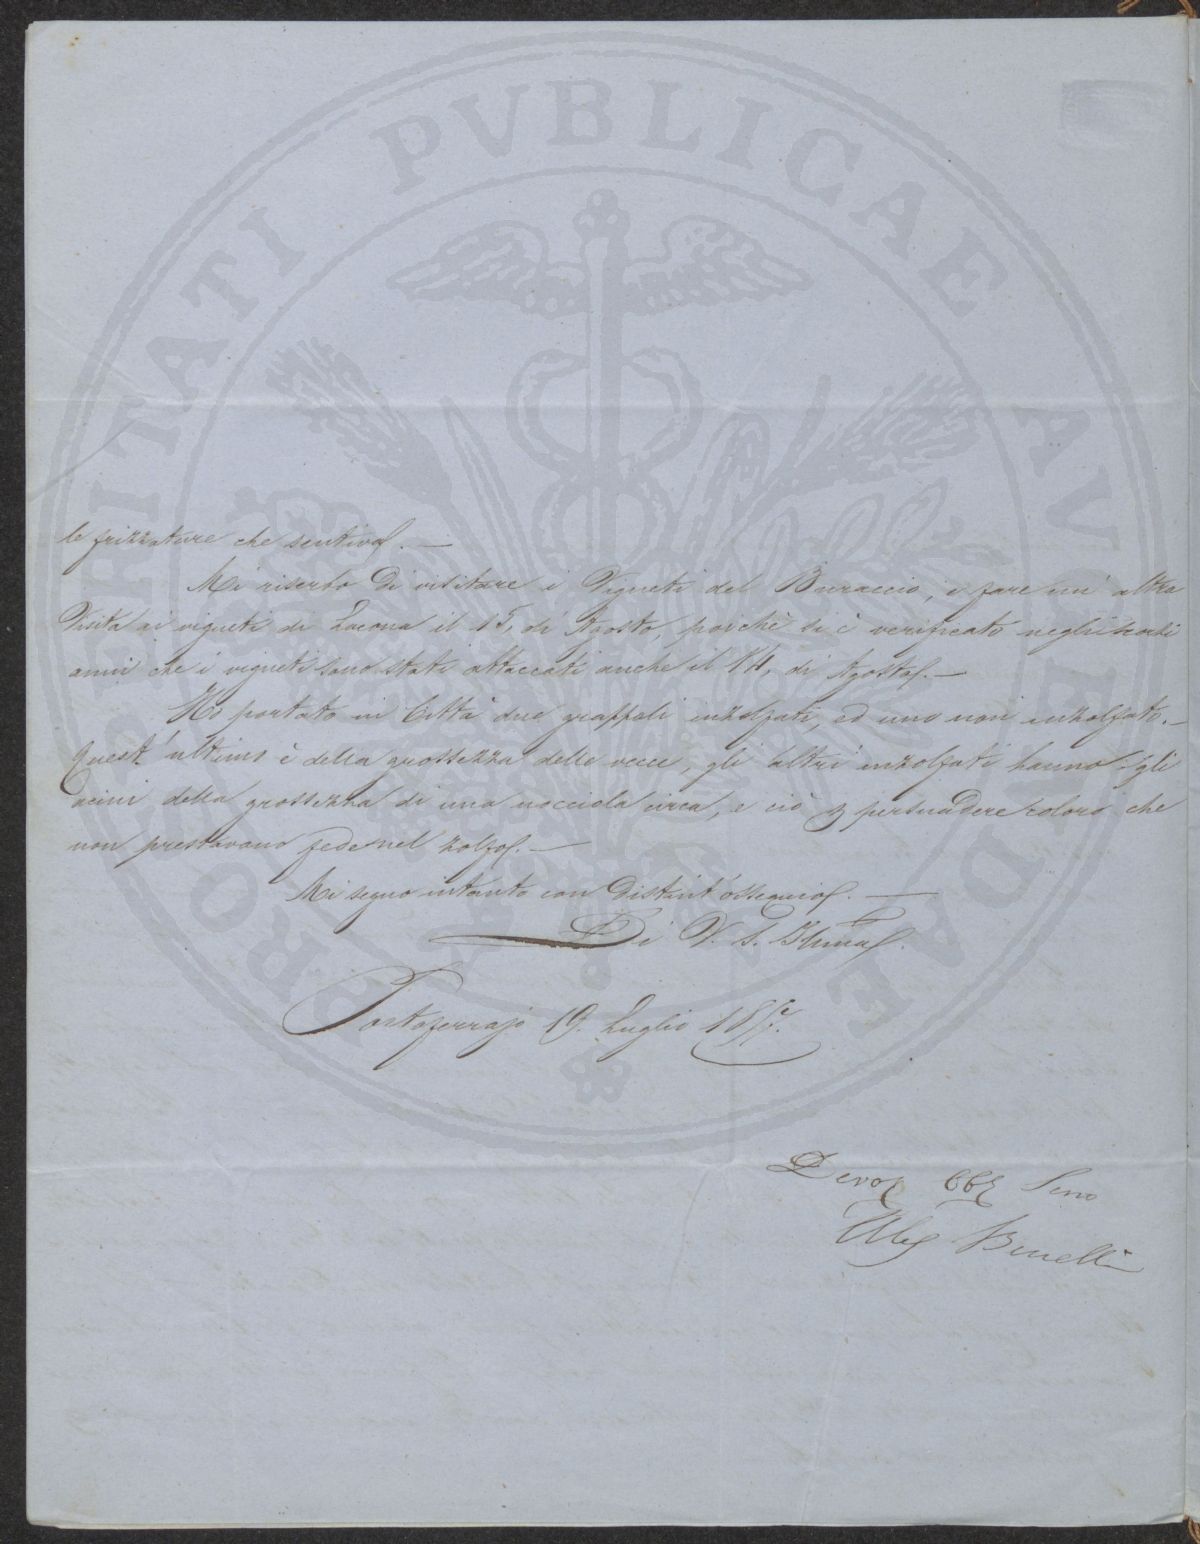 PROSPERITATI PVBLICAE AVGENDAE
le frizzature che sentiva. —
Mi riserbo di visitare i Vigneti del Buraccio, e fare un' altra
Visita ai vigneti di Lacona il 15, di Agosto, poichè si è verificato negli scorsi
anni che i vigneti sono stati attaccati anche il 14, di Agosto. —
Ho portato in Città due grappoli inzolfati, ed uno non inzolfato. —
Quest' ultimo è della grossezza delle vecce, gli altri inzolfati hanno gli
acini della grossezza di una nocciola circa, e ciò p persuadere coloro che
non prestavano fede nel zolfo. —
Mi segno intanto con distint' ossequio. —
Di V. S. Illma.
Portoferrajo 19. Luglio 185
Devo Obb Servo
Benelli